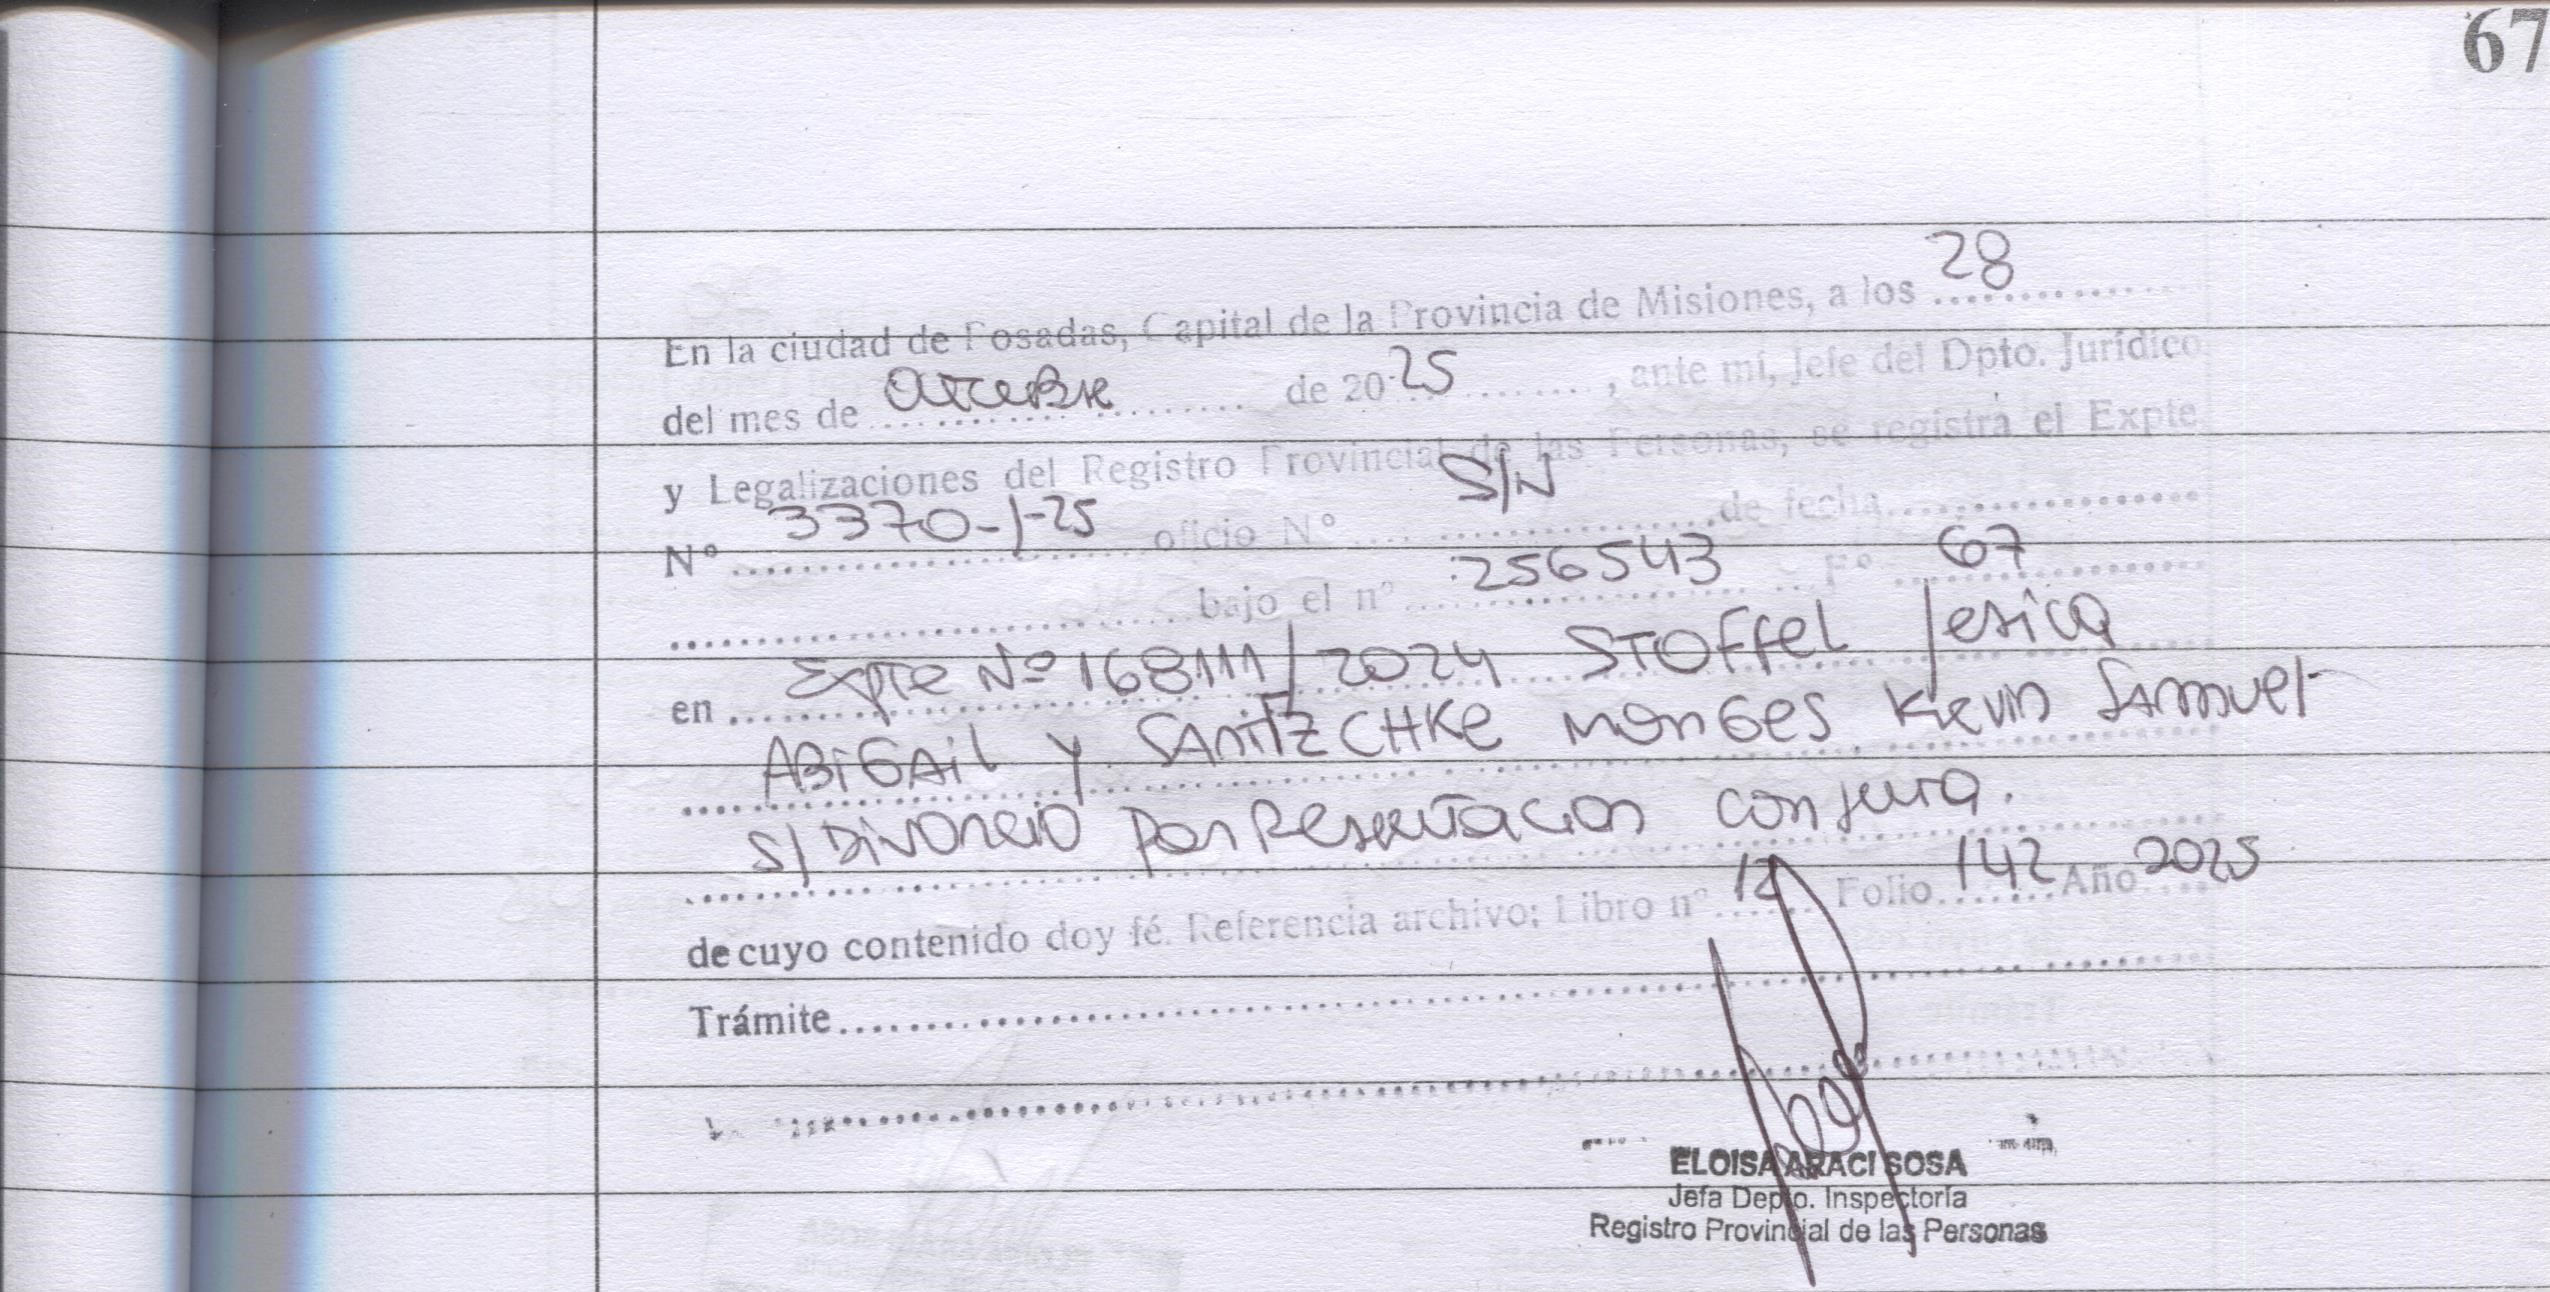 67
En la ciudad de Posadas, Capital de la Provincia de Misiones, a los 28
del mes de octubre de 2025, ante mí, Jefe del Dpto. Jurídico
y Legalizaciones del Registro Provincial de las Personas, se registra el Expte
Nº 3370-J-25 oficio Nº S/N de fecha
bajo el nº 2563543 Fº 67
en Expte Nº 168111/2024 STOFFEL Jesica
ABIGAIL Y SANITZCHKE MONGES KEVIN SAMUEL
S/ DIVORCIO POR Presentacion conjunta.
de cuyo contenido doy fé. Referencia archivo; Libro nº 12 Folio 142 Año 2025
Trámite
ELOISA ARACI SOSA
Jefa Depto. Inspectoría
Registro Provincial de las Personas